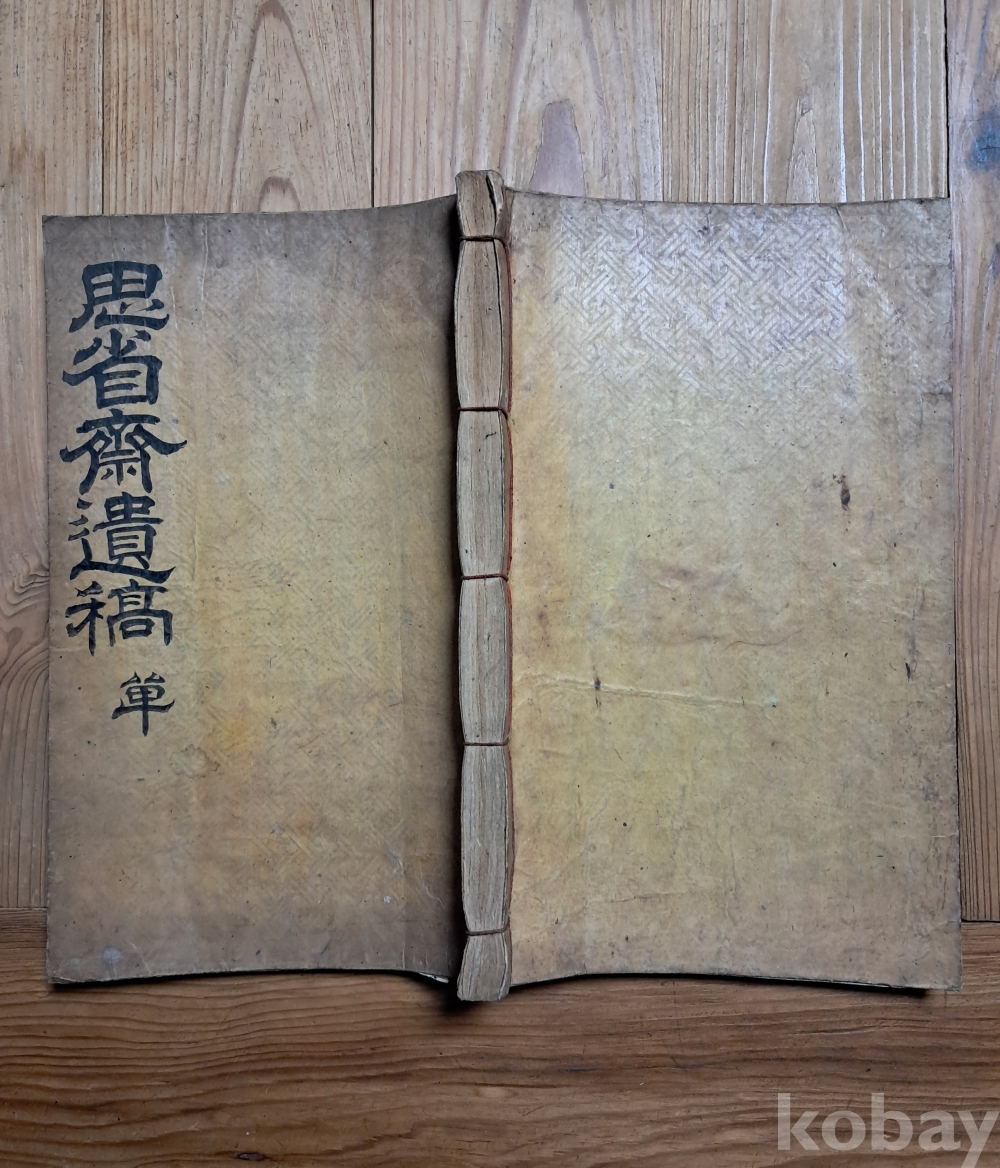 思省齋遺稿
單
kobay